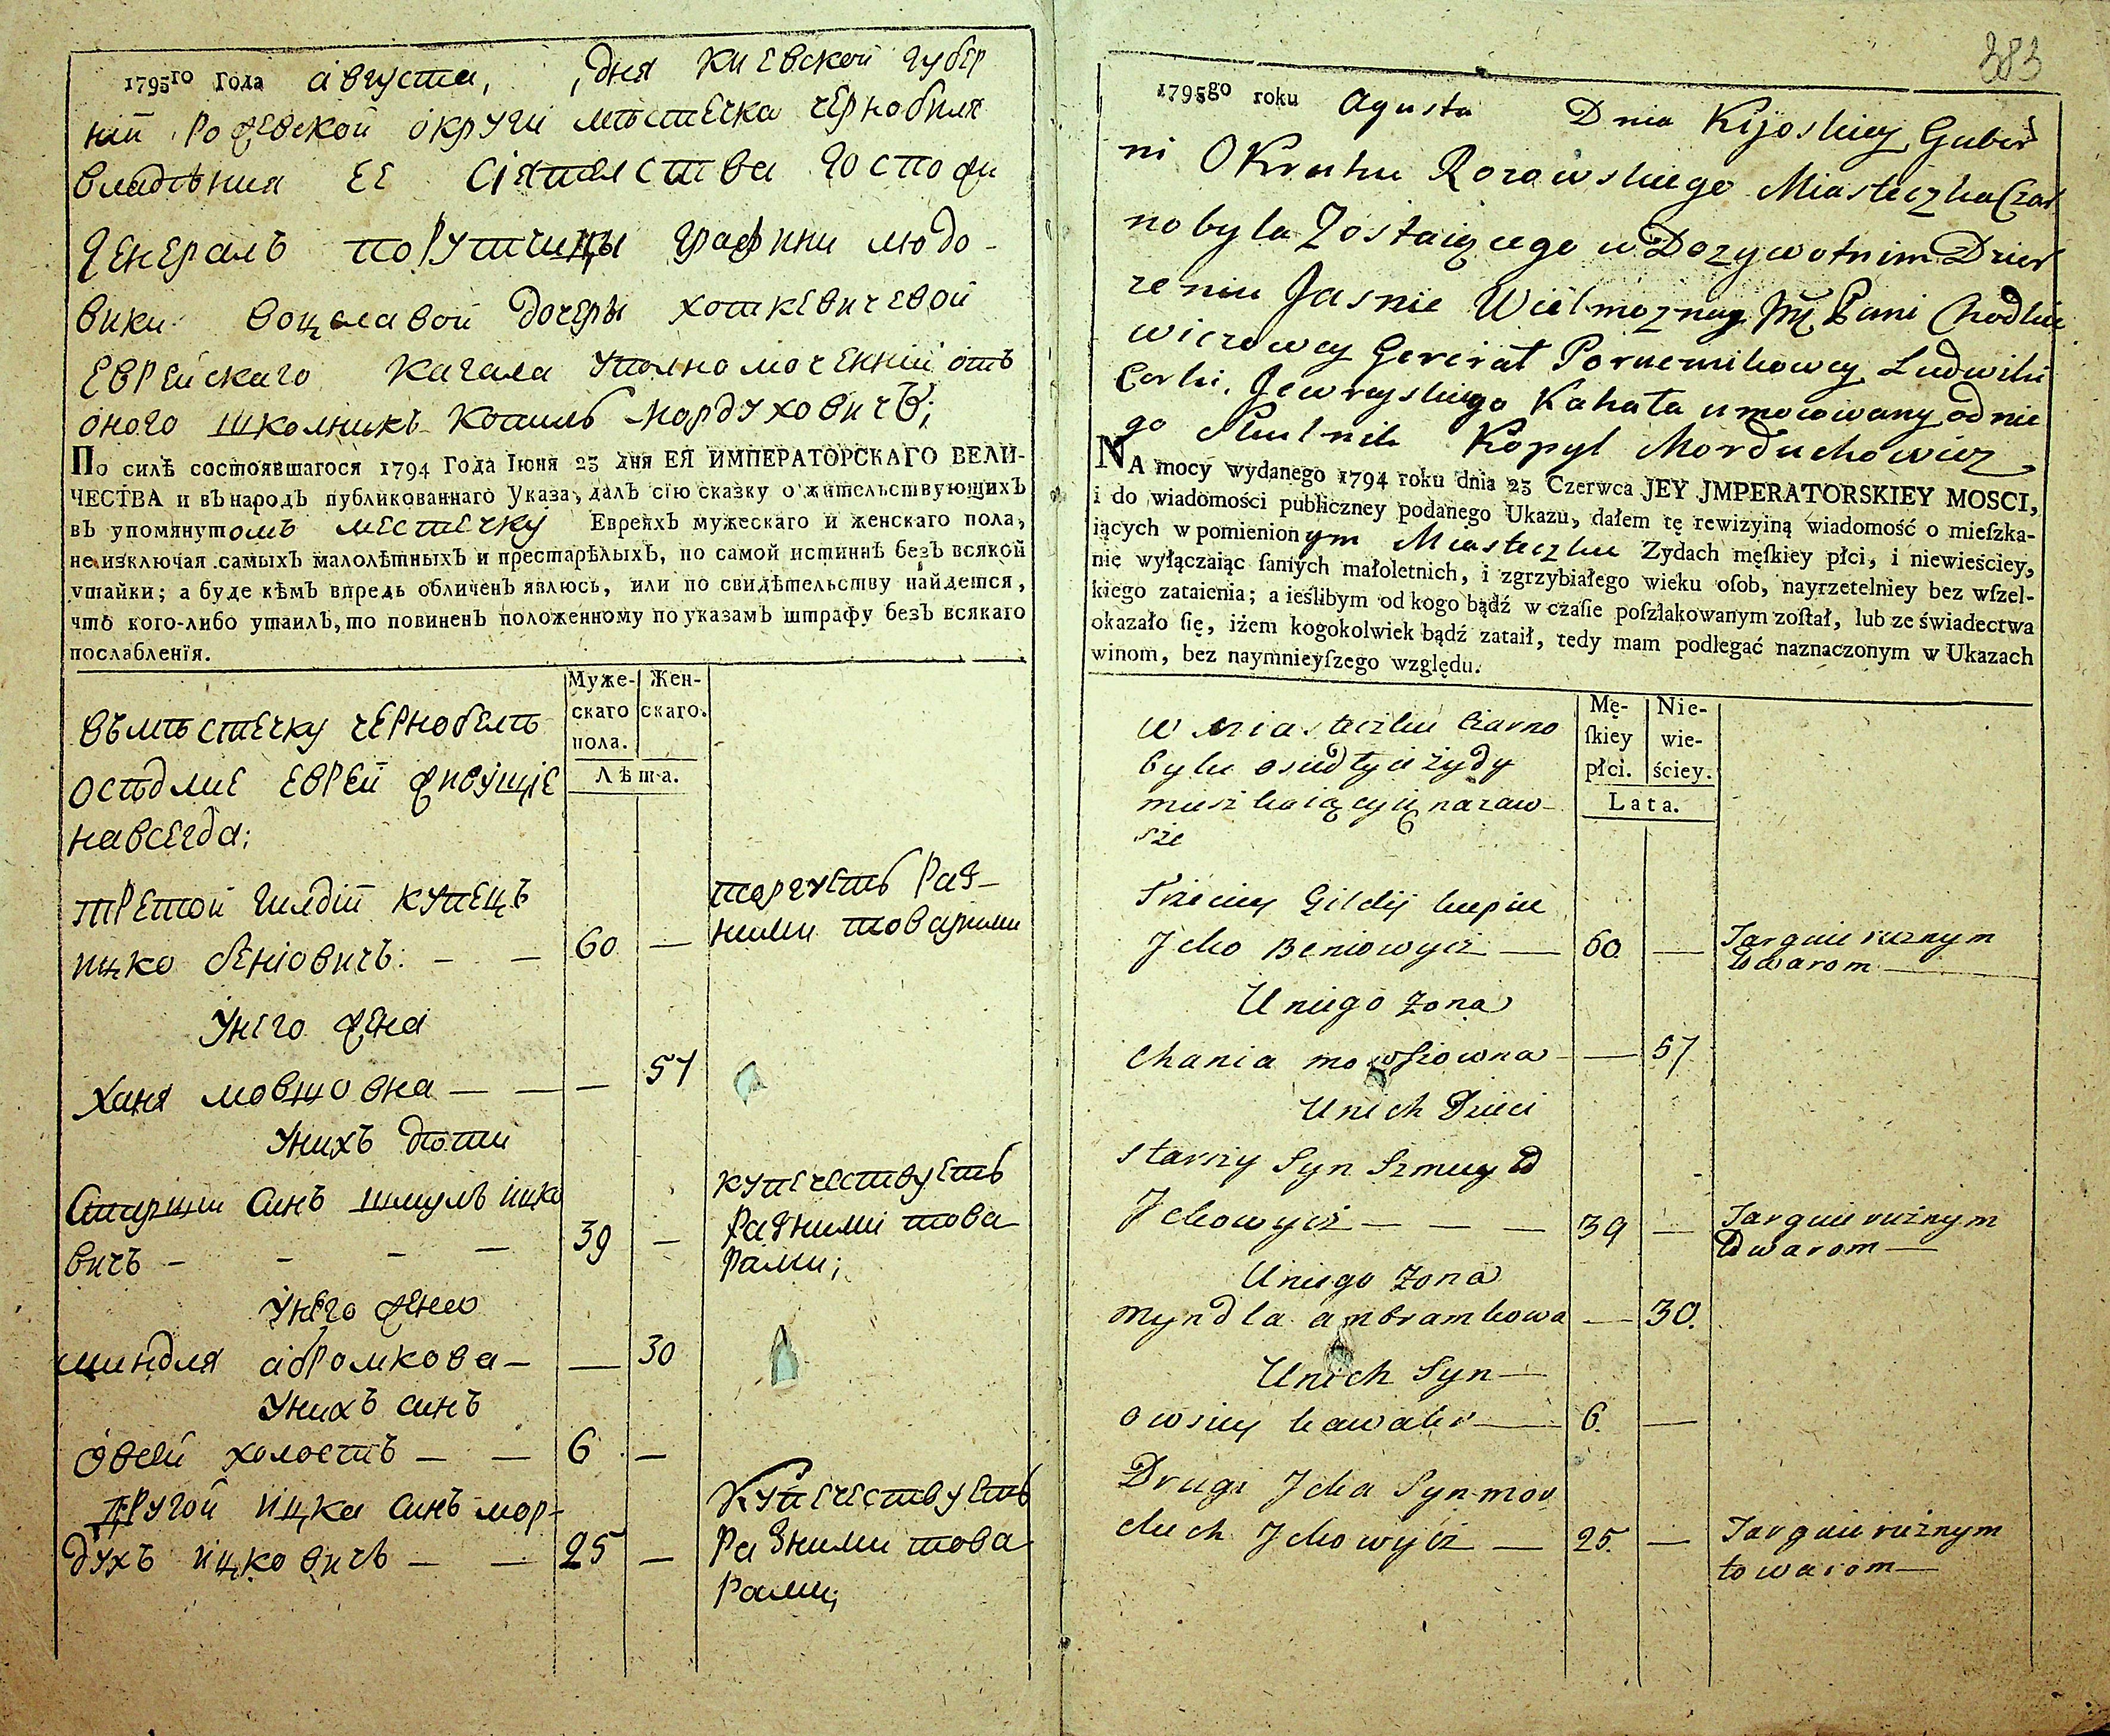 1795го Года августа, дня Киевской губер
ніи Рожевской округи мѣстечка Чернобиля
владѣния ее Сіятелства госпожи
генералъ порутчицы графини Людо-
вики Воцлавой дочеры Хоткевичевой
Еврейскаго кагала уполномоченній отъ
оного школникъ Копиль Мордуховичъ;
По силѣ состоявшагося 1794 Года Іюня 23 дня ЕЯ ИМПЕРАТОРСКАГО ВЕЛИ-
ЧЕСТВА и въ народъ публикованнаго Указа, далъ сію сказку о жительствующихъ
въ упомянутомъ местечку Евреяхъ мужескаго и женскаго пола,
не изключая самыхъ малолѣтныхъ и престарѣлыхъ, по самой истиннѣ безъ всякой
утайки; а буде кѣмъ впредь обличенъ явлюсь, или по свидѣтельству найдется,
что кого-либо утаилъ, то повиненъ положенному по указамъ штрафу безъ всякаго
послабленія.
Муже-
скаго
пола.
Жен-
скаго.
Лѣта.
Въ мѣстечку Чернобелѣ
оседлие евреи живущіе
навсегда:
третой гилдіи купецъ
Ицко Беніовичъ: — — 60 —
торгуетъ раз-
ними товарими
У него жена
Ханя Мовшовна — — — 57
У нихъ дѣти
Старщи синъ Шмуль Ицко
вичъ — — — — 39 —
купечествуетъ
разними това
рами;
У него жена
Миндля Абромкова — — 30
У нихъ синъ
Овсей холостъ — — 6 —
Другой Ицка синъ Мор-
духъ Ицковичъ — — 25 —
Купечествуетъ
разними това
рами;
383
1795go roku Agusta Dnia Kijoskiey Guber
ni Okruhu Rozowskiego Miasteczka Czar
nobyla Zostaiącego w Dozywotnim Dzier
zeniu Jasnie Wielmozney Jmę Pani Chodkie
wiczowey Gererał Porucznikowey Ludwiki
Corki, Jewreyskiego Kahała umocowany od nie
go Szkulnik Kopyl Morduchowicz
NA mocy wydanego 1794 roku dnia 23 Czerwca JEY JMPERATORSKIEY MOSCI,
i do wiadomości publiczney podanego Ukazu, dałem tę rewizyiną wiadomość o mieſzka-
iących w pomienionym Miasteczku Zydach męſkiey płci, i niewieściey,
nie wyłączaiąc ſamych małoletnich, i zgrzybiałego wieku oſob, nayrzetelniey bez wſzel-
kiego zataienia; a ieślibym od kogo bądź w czaſie poſzlakowanym zoſtał, lub ze świadectwa
okazało ſię, iżem kogokolwiek bądź zataił, tedy mam podlegać naznaczonym w Ukazach
winom, bez naymnieyſzego względu.
Mę-
ſkiey
płci.
Nie-
wie-
ściey.
Lata.
w miasteczku Czarno
bylu osiedłyie żydy
mieszkaiącyię nazaw-
sże
Trzeciey Gildij kupiec
Jcko Beniowycz — 60. —
Targuie rużnym
towarom —
Uniego żona
Chania mowszowna — — 57
Unich Dzieci
starszy Syn Szmuyło
Jckowycz — — — 39 —
Targuie rużnym
towarom —
Uniego żona
Myndla ambramkowa — 30.
Unich Syn —
Owsiey kawaler — 6. —
Drugi Jcka Syn mor
duch Jckowycz — 25. —
Targuie rużnym
towarom —